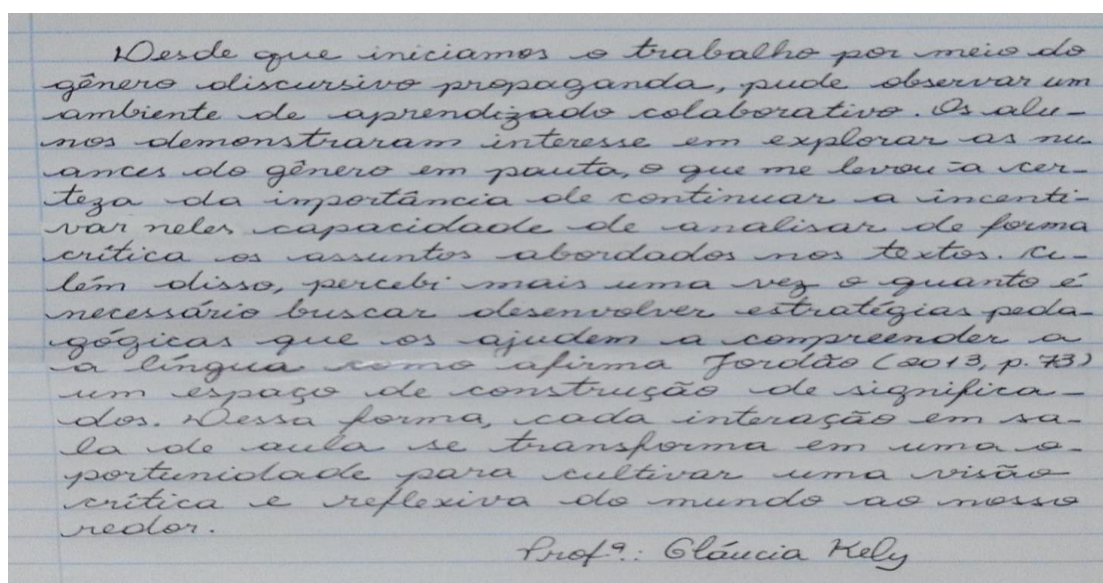 Desde que iniciamos o trabalho por meio do
gênero discursivo propaganda, pude observar um
ambiente de aprendizado colaborativo. Os alu-
nos demonstraram interesse em explorar as nu
ances do gênero em pauta, o que me levou a cer-
teza da importância de continuar a incenti-
var neles capacidade de analisar de forma
crítica os assuntos abordados nos textos. A-
lém disso, percebi mais uma vez o quanto é
necessário buscar desenvolver estratégias peda-
gógicas que os ajudem a compreender a
a língua como afirma Jordão (2013, p. 73)
um espaço de construção de significa-
dos. Dessa forma, cada interação em sa-
la de aula se transforma em uma o-
portunidade para cultivar uma visão
crítica e reflexiva do mundo ao nosso
redor.
Profª.: Gláucia Kely